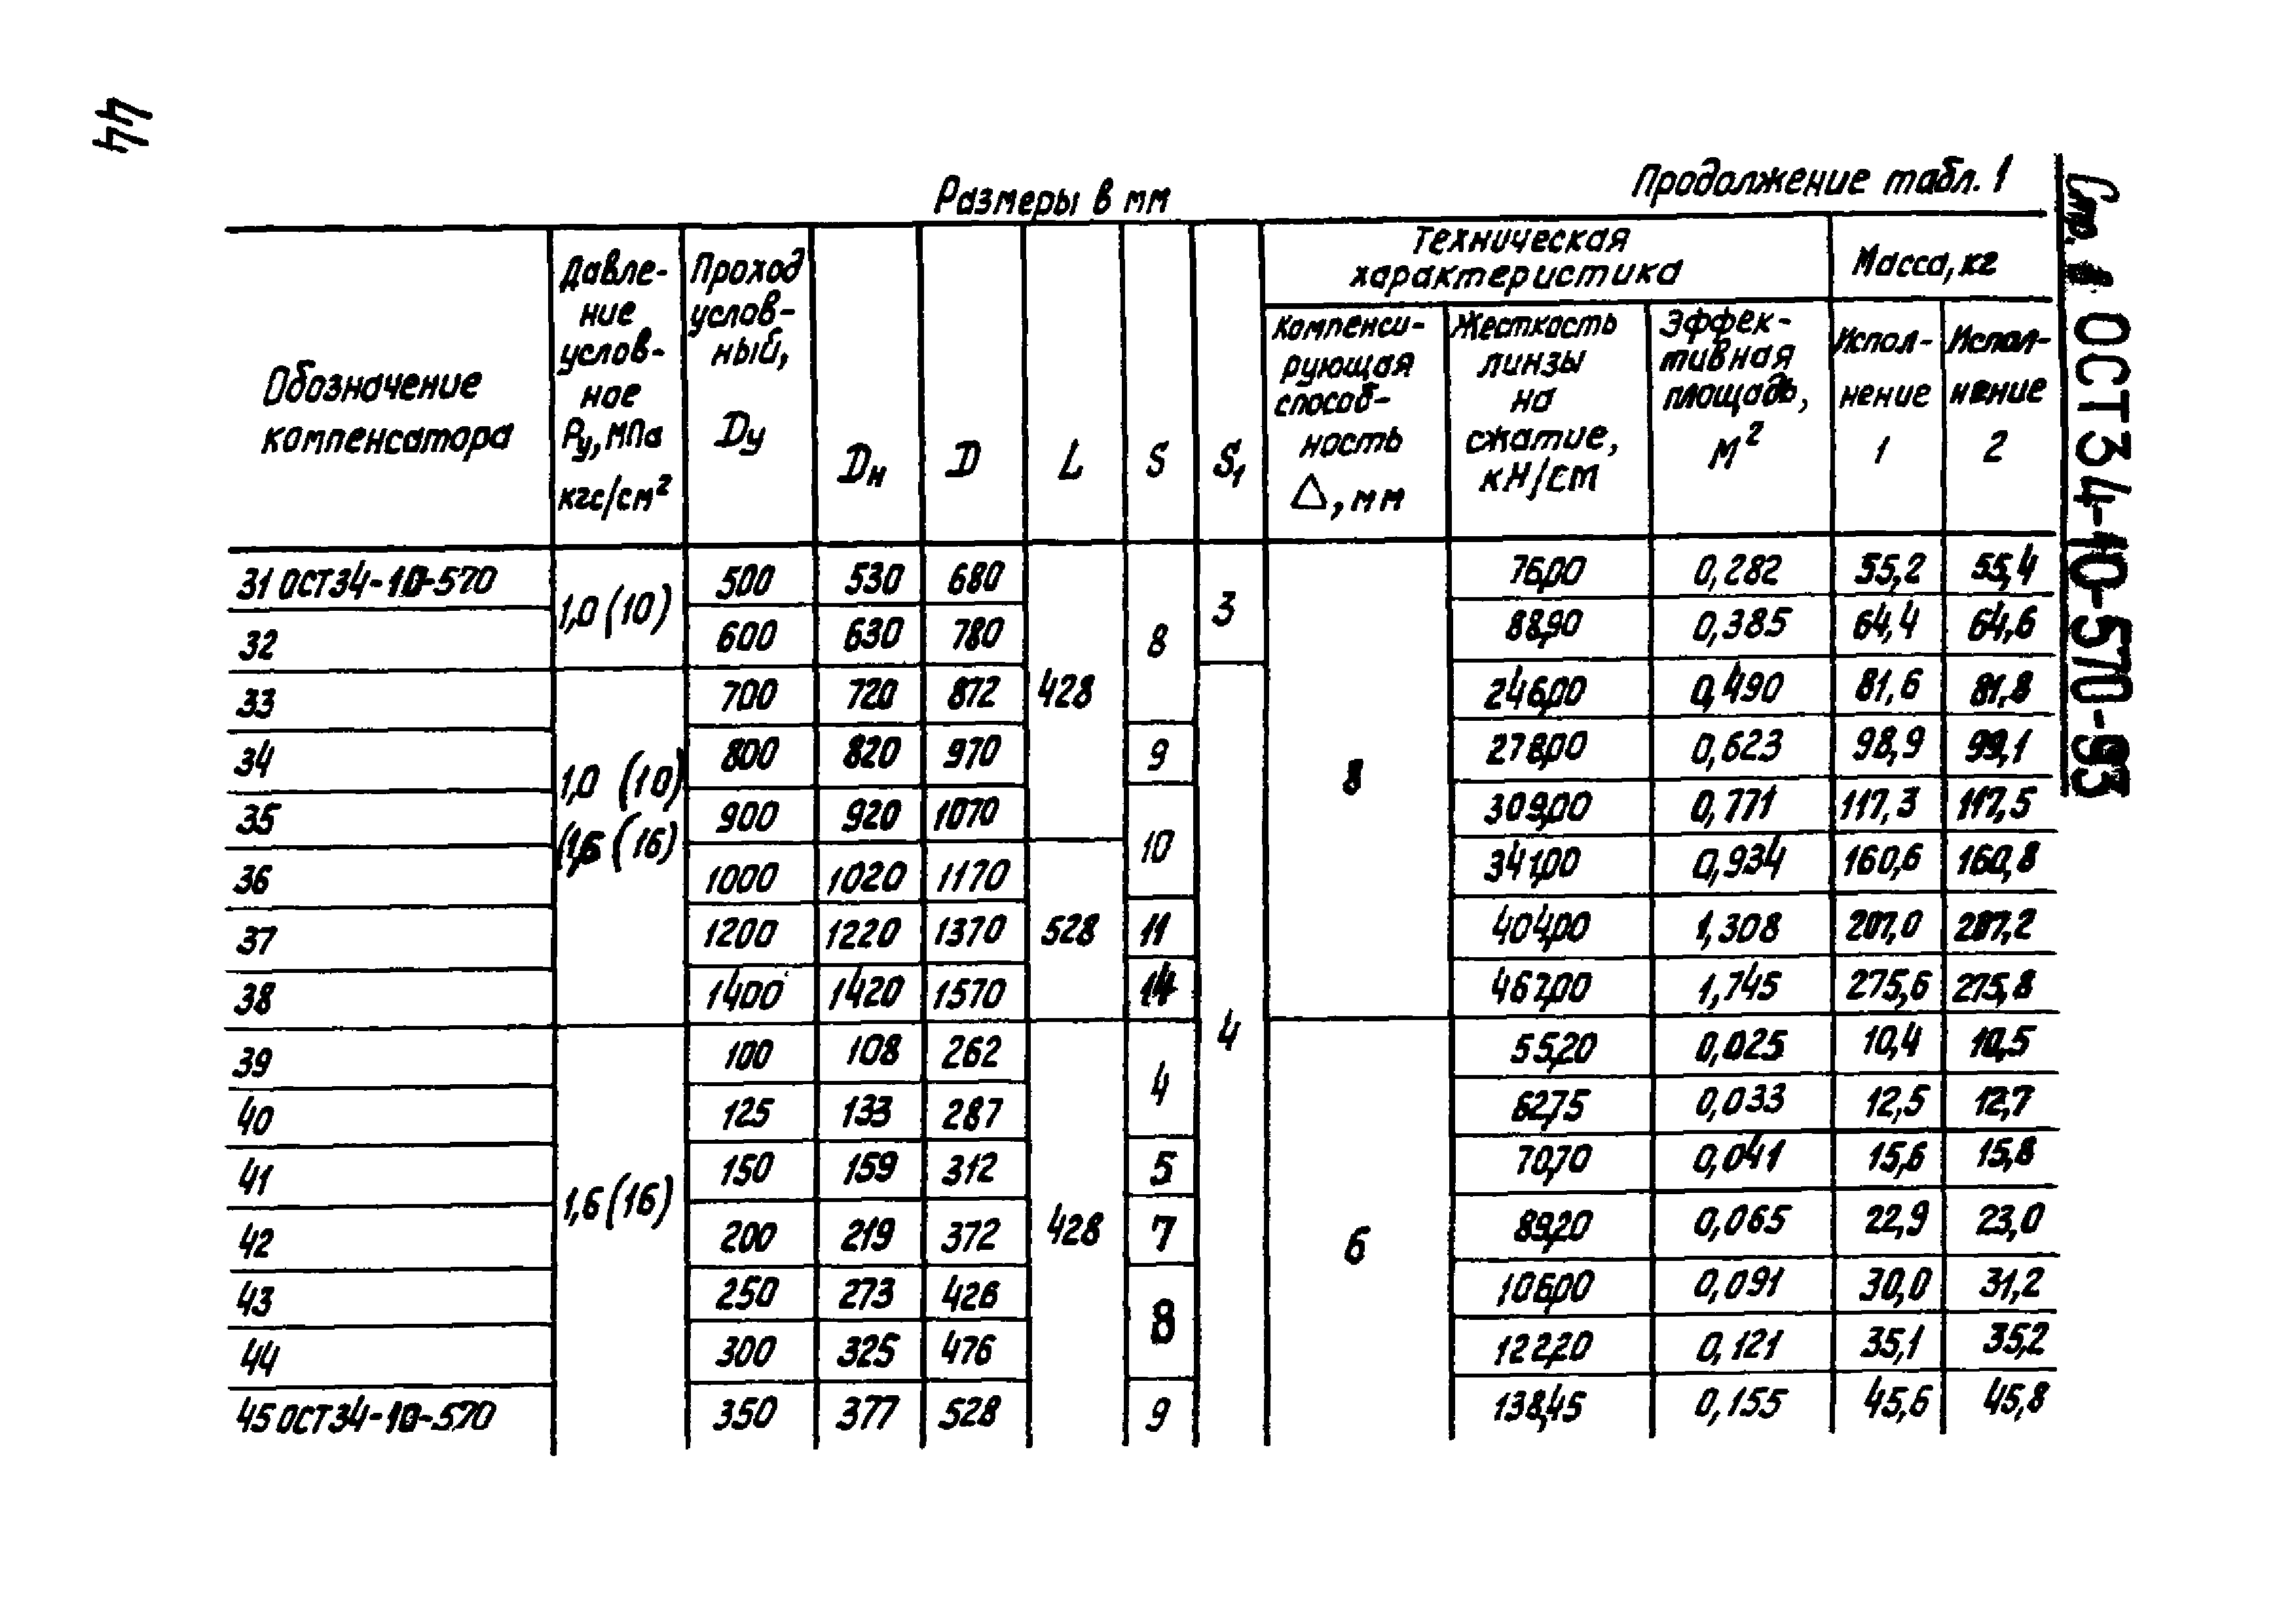 44
Размеры в мм
Продолжение табл. 1
Обозначение компенсатора
Давле- ние услов- ное Ру, МПа кгс/см²
Проход услов- ный, Dу
Dн
D
L
S
S₁
Техническая характеристика
Компенси- рующая способ- ность △, мм
Жесткость линзы на сжатие, кН/см
Эффек- тивная площадь, м²
Масса, кг
Испол- нение 1
Испол- нение 2
31 ОСТ34-10-570 1,0 (10) 500 530 680 428 8 3 8 76,00 0,282 55,2 55,4
32 600 630 780 88,90 0,385 64,4 64,6
33 1,0 (10) (1,6 (16) 700 720 872 4 246,00 0,490 81,6 81,8
34 800 820 970 9 278,00 0,623 98,9 99,1
35 900 920 1070 10 309,00 0,771 117,3 117,5
36 1000 1020 1170 528 341,00 0,934 160,6 160,8
37 1200 1220 1370 11 404,00 1,308 207,0 207,2
38 1400 1420 1570 14 467,00 1,745 275,6 275,8
39 1,6 (16) 100 108 262 428 4 6 55,20 0,025 10,4 10,5
40 125 133 287 62,75 0,033 12,5 12,7
41 150 159 312 5 70,70 0,041 15,6 15,8
42 200 219 372 7 89,20 0,065 22,9 23,0
43 250 273 426 8 106,00 0,091 30,0 31,2
44 300 325 476 122,20 0,121 35,1 35,2
45 ОСТ34-10-570 350 377 528 9 138,45 0,155 45,6 45,8
Стр. ОСТ 34-10-570-93